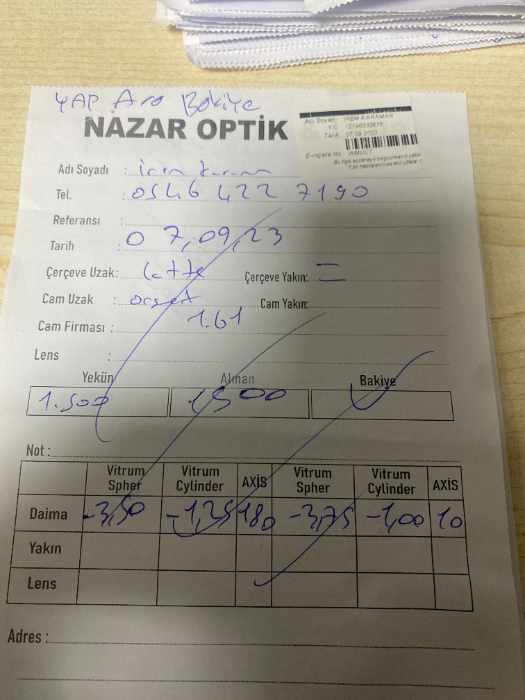 YAP Ara Bakiye
NAZAR OPTİK
Adı Soyadı : IREM KARAMAN
Tarih : 07.09.2023
Adı Soyadı : irem karaman
Tel. : 0546 422 7190
Referansı :
Tarih : 07,09,23
Çerçeve Uzak: Çerçeve Yakın: =
Cam Uzak : Cam Yakın:
Cam Firması : 1.61
Lens :
Yekün Alınan Bakiye
1.500 1500
Not :
Vitrum Spher Vitrum Cylinder AXİS Vitrum Spher Vitrum Cylinder AXİS
Daima -3,50 -1,25 180 -3,75 -1,00 10
Yakın
Lens
Adres :